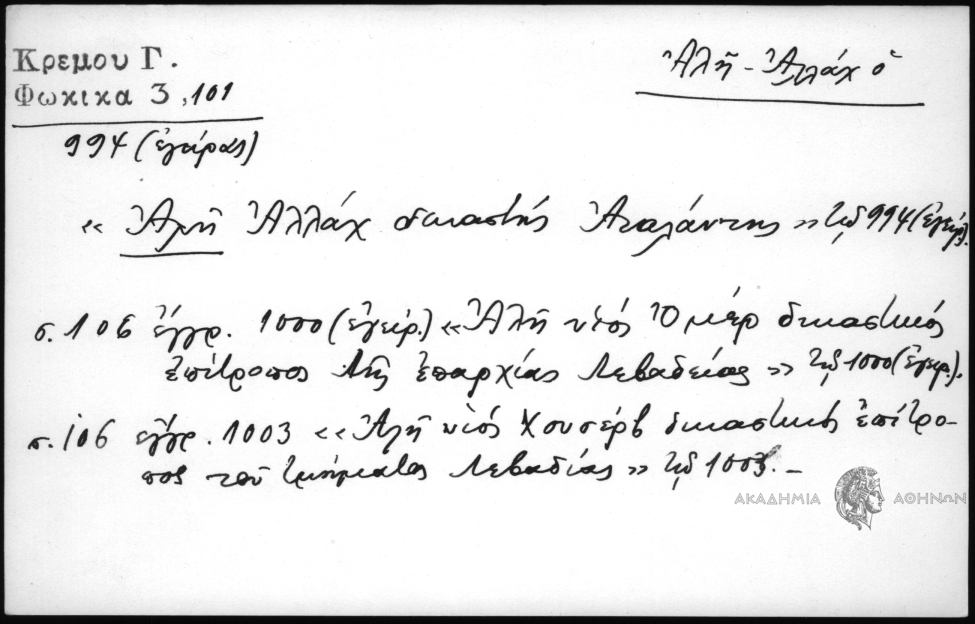 Κρεμου Γ.
Φωκικα 3, 101
Ἀλῆ - Ἀλλάχ ὁ
994 (ἐγείρας)
« Ἀλῆ Ἀλλάχ δικαστής Ἀταλάντης » τῷ 994 (ἐγείρ).
σ. 106 ἔγγρ. 1000 (ἐγείρ.) «Ἀλῆ υἱός Ὀμέρ δικαστικός
ἐπίτροπος τῆς ἐπαρχίας Λεβαδείας » τῷ 1000 (ἐγειρ.).
σ. 106 ἔγγρ. 1003 «Ἀλῆ υἱός Χουσέρβ δικαστικός ἐπίτρο-
πος τοῦ τμήματος Λεβαδίας » τῷ 1003. -
ΑΚΑΔΗΜΙΑ ΑΘΗΝΩΝ